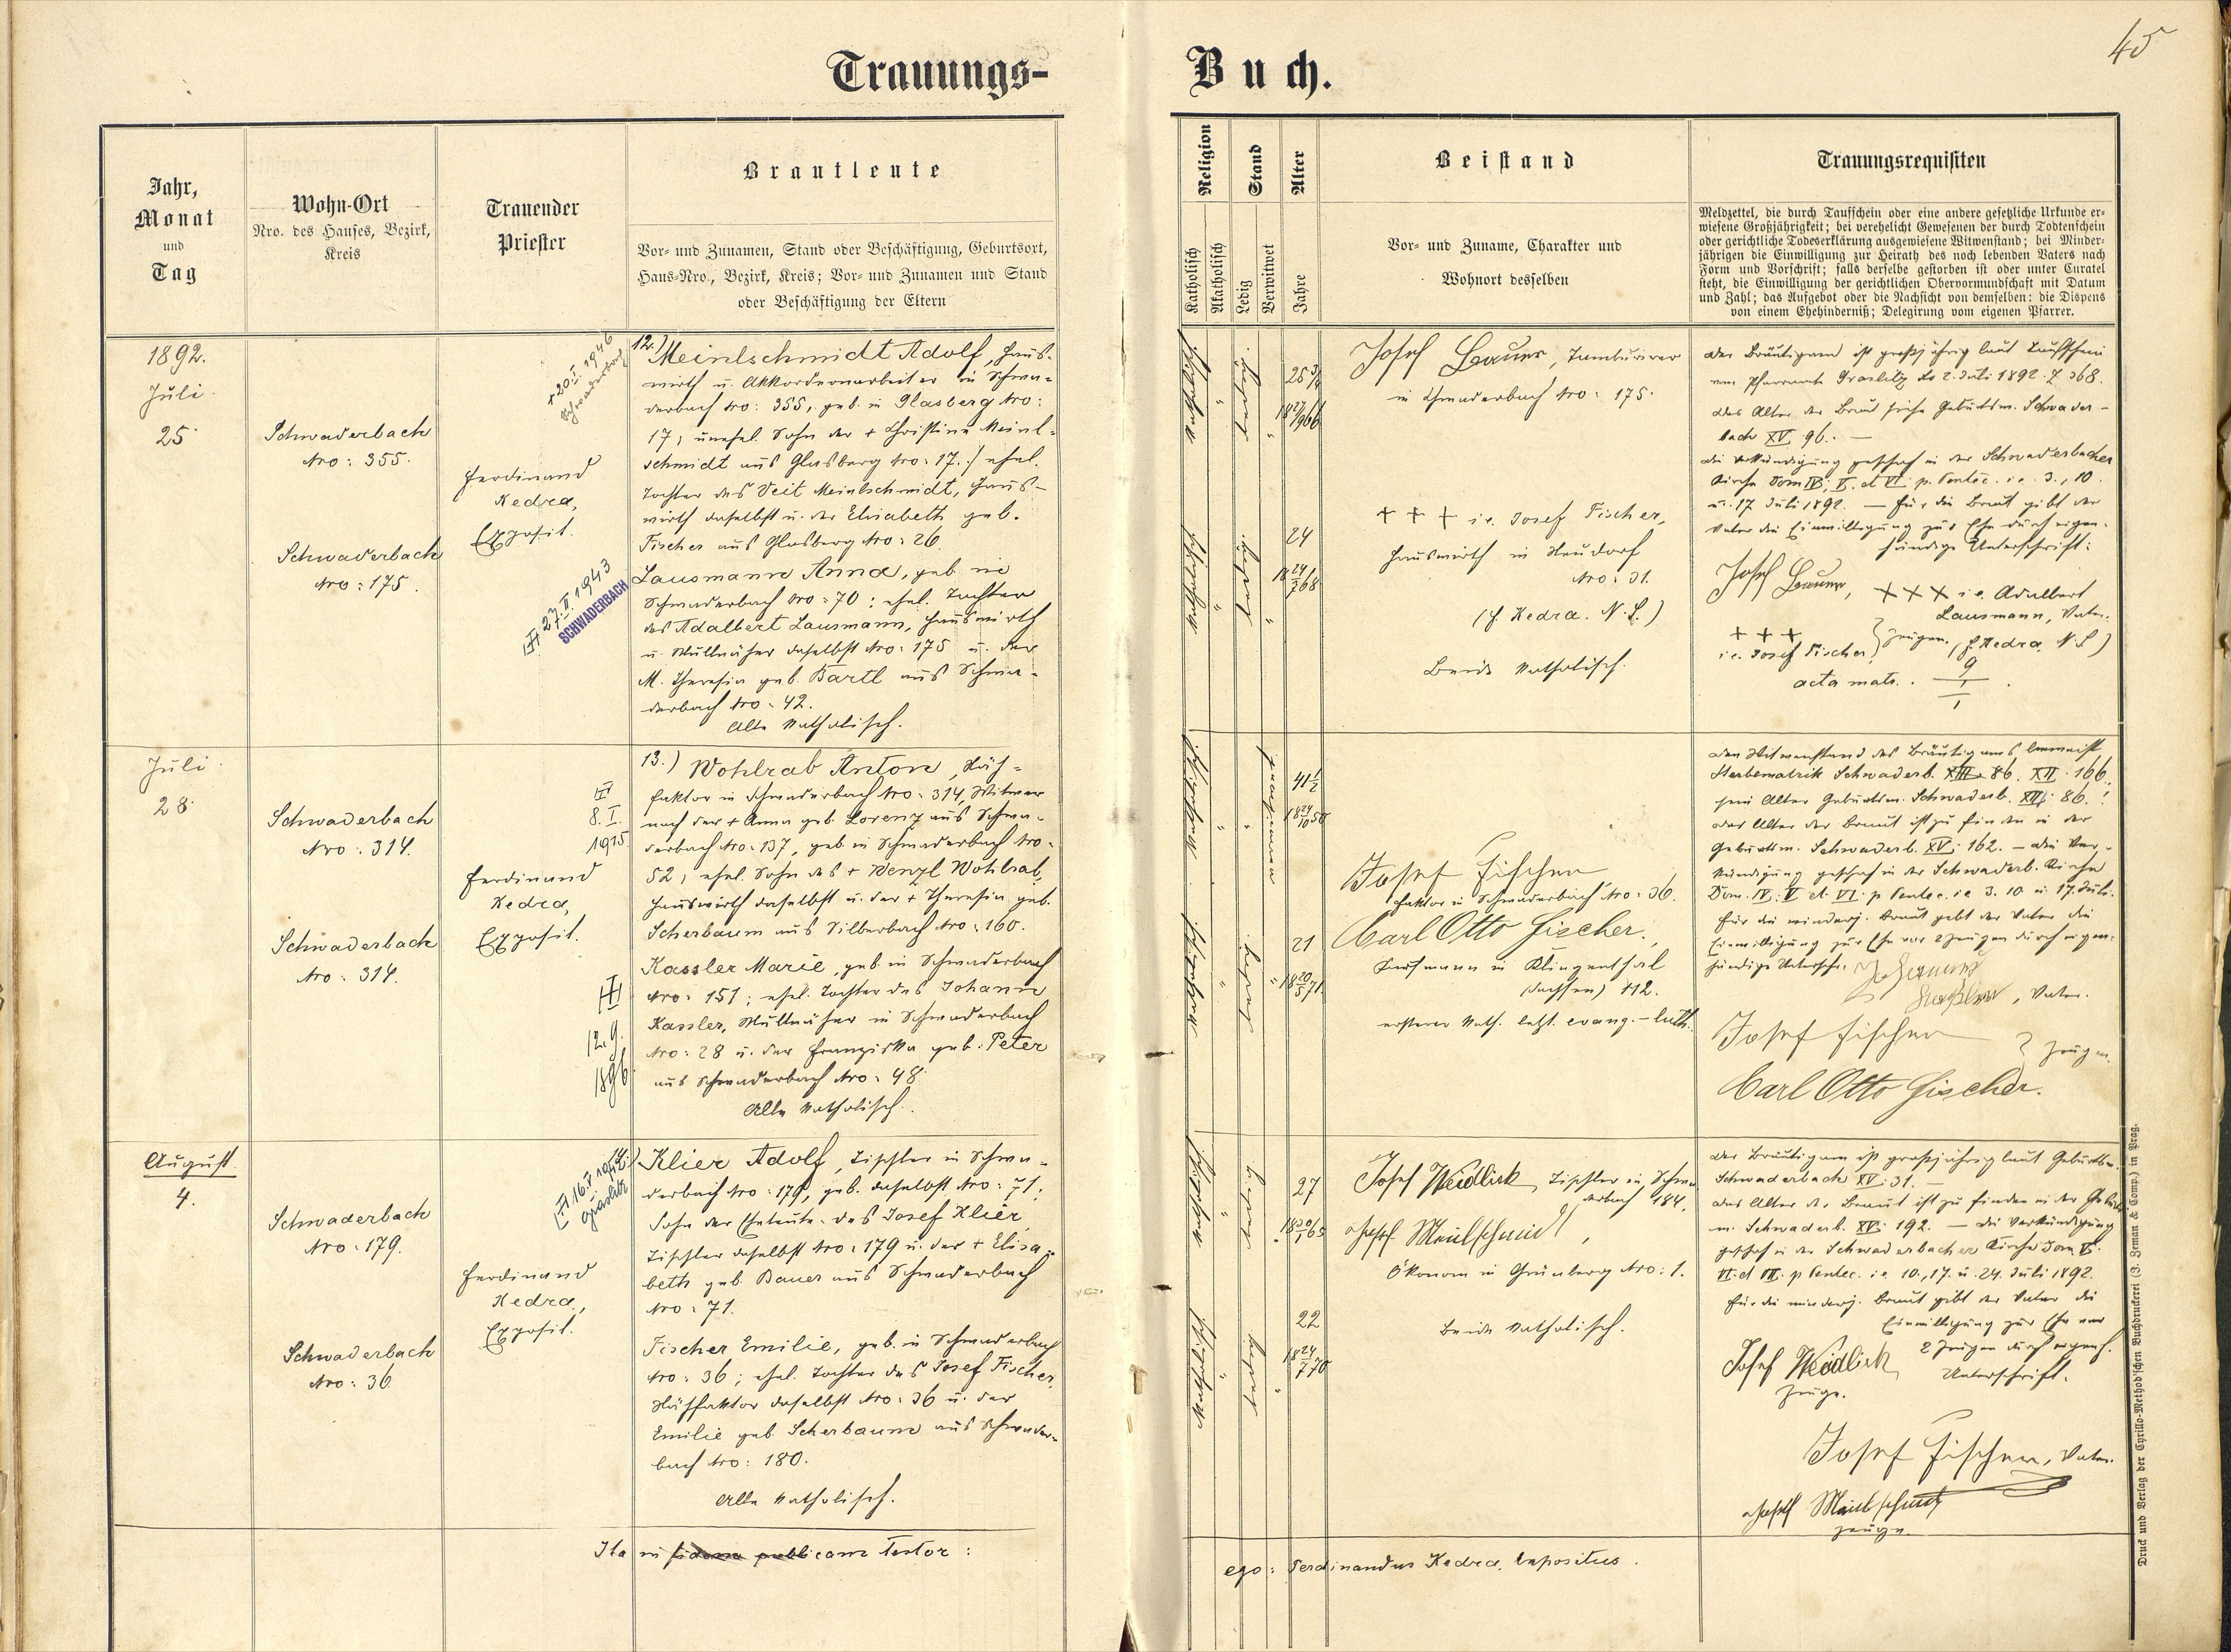 45
Trauungs-
Buch.
Jahr,
Monat
und
Tag
Wohn-Ort
Nro. des Hauses, Bezirk,
Kreis
Trauender
Priester
Brautleute
Vor- und Zunamen, Stand oder Beschäftigung, Geburtsort,
Haus-Nro., Bezirk, Kreis; Vor- und Zunamen und Stand
oder Beschäftigung der Eltern
Religion
Katholisch
Akatholisch
Stand
Ledig
Verwitwet
Alter
Jahre
Beistand
Vor- und Zuname, Charakter und
Wohnort desselben
Trauungsrequisiten
Meldzettel, die durch Taufschein oder eine andere gesetzliche Urkunde er-
wiesene Großjährigkeit; bei verehelicht Gewesenen der durch Todtenschein
oder gerichtliche Todeserklärung ausgewiesene Witwenstand; bei Minder-
jährigen die Einwilligung zur Heirath des noch lebenden Vaters nach
Form und Vorschrift; falls derselbe gestorben ist oder unter Curatel
steht, die Einwilligung der gerichtlichen Obervormundschaft mit Datum
und Zahl; das Aufgebot oder die Nachsicht von demselben; die Dispens
von einem Ehehinderniß; Delegirung vom eigenen Pfarrer.
1892.
Juli
25.
Schwaderbach
Nro: 355.
Schwaderbach
Nro: 175.
Ferdinand
Kedra,
Exposit.
+ 20. I. 1946
Schwaderbach
+ 27. II. 1943
SCHWADERBACH
12.) Meinlschmidt Adolf, Haus-
wirth u. Akkordeonarbeiter in Schwa-
derbach Nro: 355, geb. in Glasberg Nro:
17, unehel. Sohn der + Christina Meinl-
schmidt aus Glasberg Nro: 17. / ehel.
Tochter des Veit Meinlschmidt, Haus-
wirth daselbst u. der Elisabeth geb.
Fischer aus Glasberg Nro: 26.
Lausmann Anna, geb. in
Schwaderbach Nro: 70; ehel. Tochter
des Adalbert Lausmann, Hauswirth
u. daselbst Nro: 175 u. der
M. Theresia geb. Bartl aus Schwa-
derbach Nro: 42.
Alle Katholisch.
katholisch
ledig
24
Josef Bauer, Tambourirer
in Schwaderbach Nro: 175.
+ + + i.e. Josef Fischer,
Hauswirth in Neudorf
Nro: 31.
(F. Kedra. N.F.)
Beide Katholisch.
Der Bräutigam ist großjährig laut Taufschein
vom Pfarramte Graslitz do 2. Juli 1892. Z. 368.
Das Alter der Braut siehe Geburtsm. Schwader-
bach XV. 96. —
Die Verkündigung geschah in der Schwaderbacher
Kirche Dom IV., V. et VI. p. Pentec. i.e. 3., 10.
u. 17 Juli 1892. — Für die Braut gibt der
Vater die Einwilligung zur Ehe durch eigen-
händige Unterschrift:
Josef Bauer, + + + i.e. Adalbert
Lausmann, Vater.
+ + +
i.e. Josef Fischer } Zeugen. (F. Kedra. N.F.)
acta matr.
Juli
28.
Schwaderbach
Nro: 314.
Schwaderbach
Nro: 314.
Ferdinand
Kedra,
Exposit.
8. I.
1915
12. 9.
1896
13.) Wohlrab Anton, Näh-
faktor in Schwaderbach Nro: 314, Witwer
nach der + Anna geb. Lorenz aus Schwa-
derbach Nro: 137, geb. in Schwaderbach Nro:
52; ehel. Sohn des + Wenzl Wohlrab,
Hauswirth daselbst u. der + Theresia geb.
Scherbaum aus Silberbach Nro: 160.
Kassler Marie, geb. in Schwaderbach
Nro: 151; ehel. Tochter des Johann
Kassler, in Schwaderbach
Nro: 28 u. der Franziska geb. Peter
aus Schwaderbach Nro: 48.
Alle Katholisch.
katholisch
41½
ledig
21
Josef Fischer
Faktor in Schwaderbach Nro: 36.
Carl Otto Fischer.
Kaufmann in Klingenthal
(Sachsen) 112.
ersterer Kath. letzt. evang.-luth.
Den Witwenstand des Bräutigams beweist
Sterbematrik Schwaderb. XII. 166.
sein Alter Geburtsm. Schwaderb. XII. 86.
Das Alter der Braut ist zu finden in der
Geburtsm. Schwaderb. XV. 162. — Die Ver-
kündigung geschah in der Schwaderb. Kirche
Dom. IV. V. et VI. p Pentec. i.e 3. 10 u. 17. Juli.
Für die minderj. Braut gibt der Vater die
Einwilligung zur Ehe vor 2 Zeugen durch eigen-
händige Unterschr.
Johann
Kassler, Vater.
Josef Fischer
Carl Otto Fischer.
} Zeugen.
August.
4.
Schwaderbach
Nro: 179.
Schwaderbach
Nro: 36.
Ferdinand
Kedra,
Exposit.
16. I. 1942
Graslitz
14.) Klier Adolf, Tischler in Schwa-
derbach Nro: 179, geb. daselbst Nro: 71;
Sohn der Eheleute des Josef Klier,
Tischler daselbst Nro: 179 u. der + Elisa-
beth geb. Bauer aus Schwaderbach
Nro: 71.
Fischer Emilie, geb. in Schwaderbach
Nro: 36; ehel. Tochter des Josef Fischer,
Nähfaktor daselbst Nro: 36 u. der
Emilie geb. Scherbaum aus Schwader-
bach Nro: 180.
Alle Katholisch.
katholisch
ledig
27
22
Josef Weidlich, Tischler in Schwa-
derbach 184.
Josef Meinlschmidt,
Ökonom in Grünberg Nro: 1.
Beide Katholisch.
Der Bräutigam ist großjährig laut Geburtsm.
Schwaderbach XV. 31. —
Das Alter der Braut ist zu finden in der Geburts-
m. Schwaderb. XV. 192. — Die Verkündigung
geschah in der Schwaderbacher Kirche Dom V.
VI. et VII. p Pentec. i.e. 10., 17. u. 24. Juli 1892.
Für die minderj. Braut gibt der Vater die
Einwilligung zur Ehe vor
2 Zeugen durch eigenh.
Unterschrift.
Josef Weidlich
Zeuge.
Josef Fischer, Vater.
Josef Meinlschmidt
Zeuge.
Ita in fidem publicam testor:
ego: Ferdinandus Kedra, Expositus.
Druck und Verlag der Cyrillo-Method'schen Buchdruckerei (J. Zeman & Comp.) in Prag.